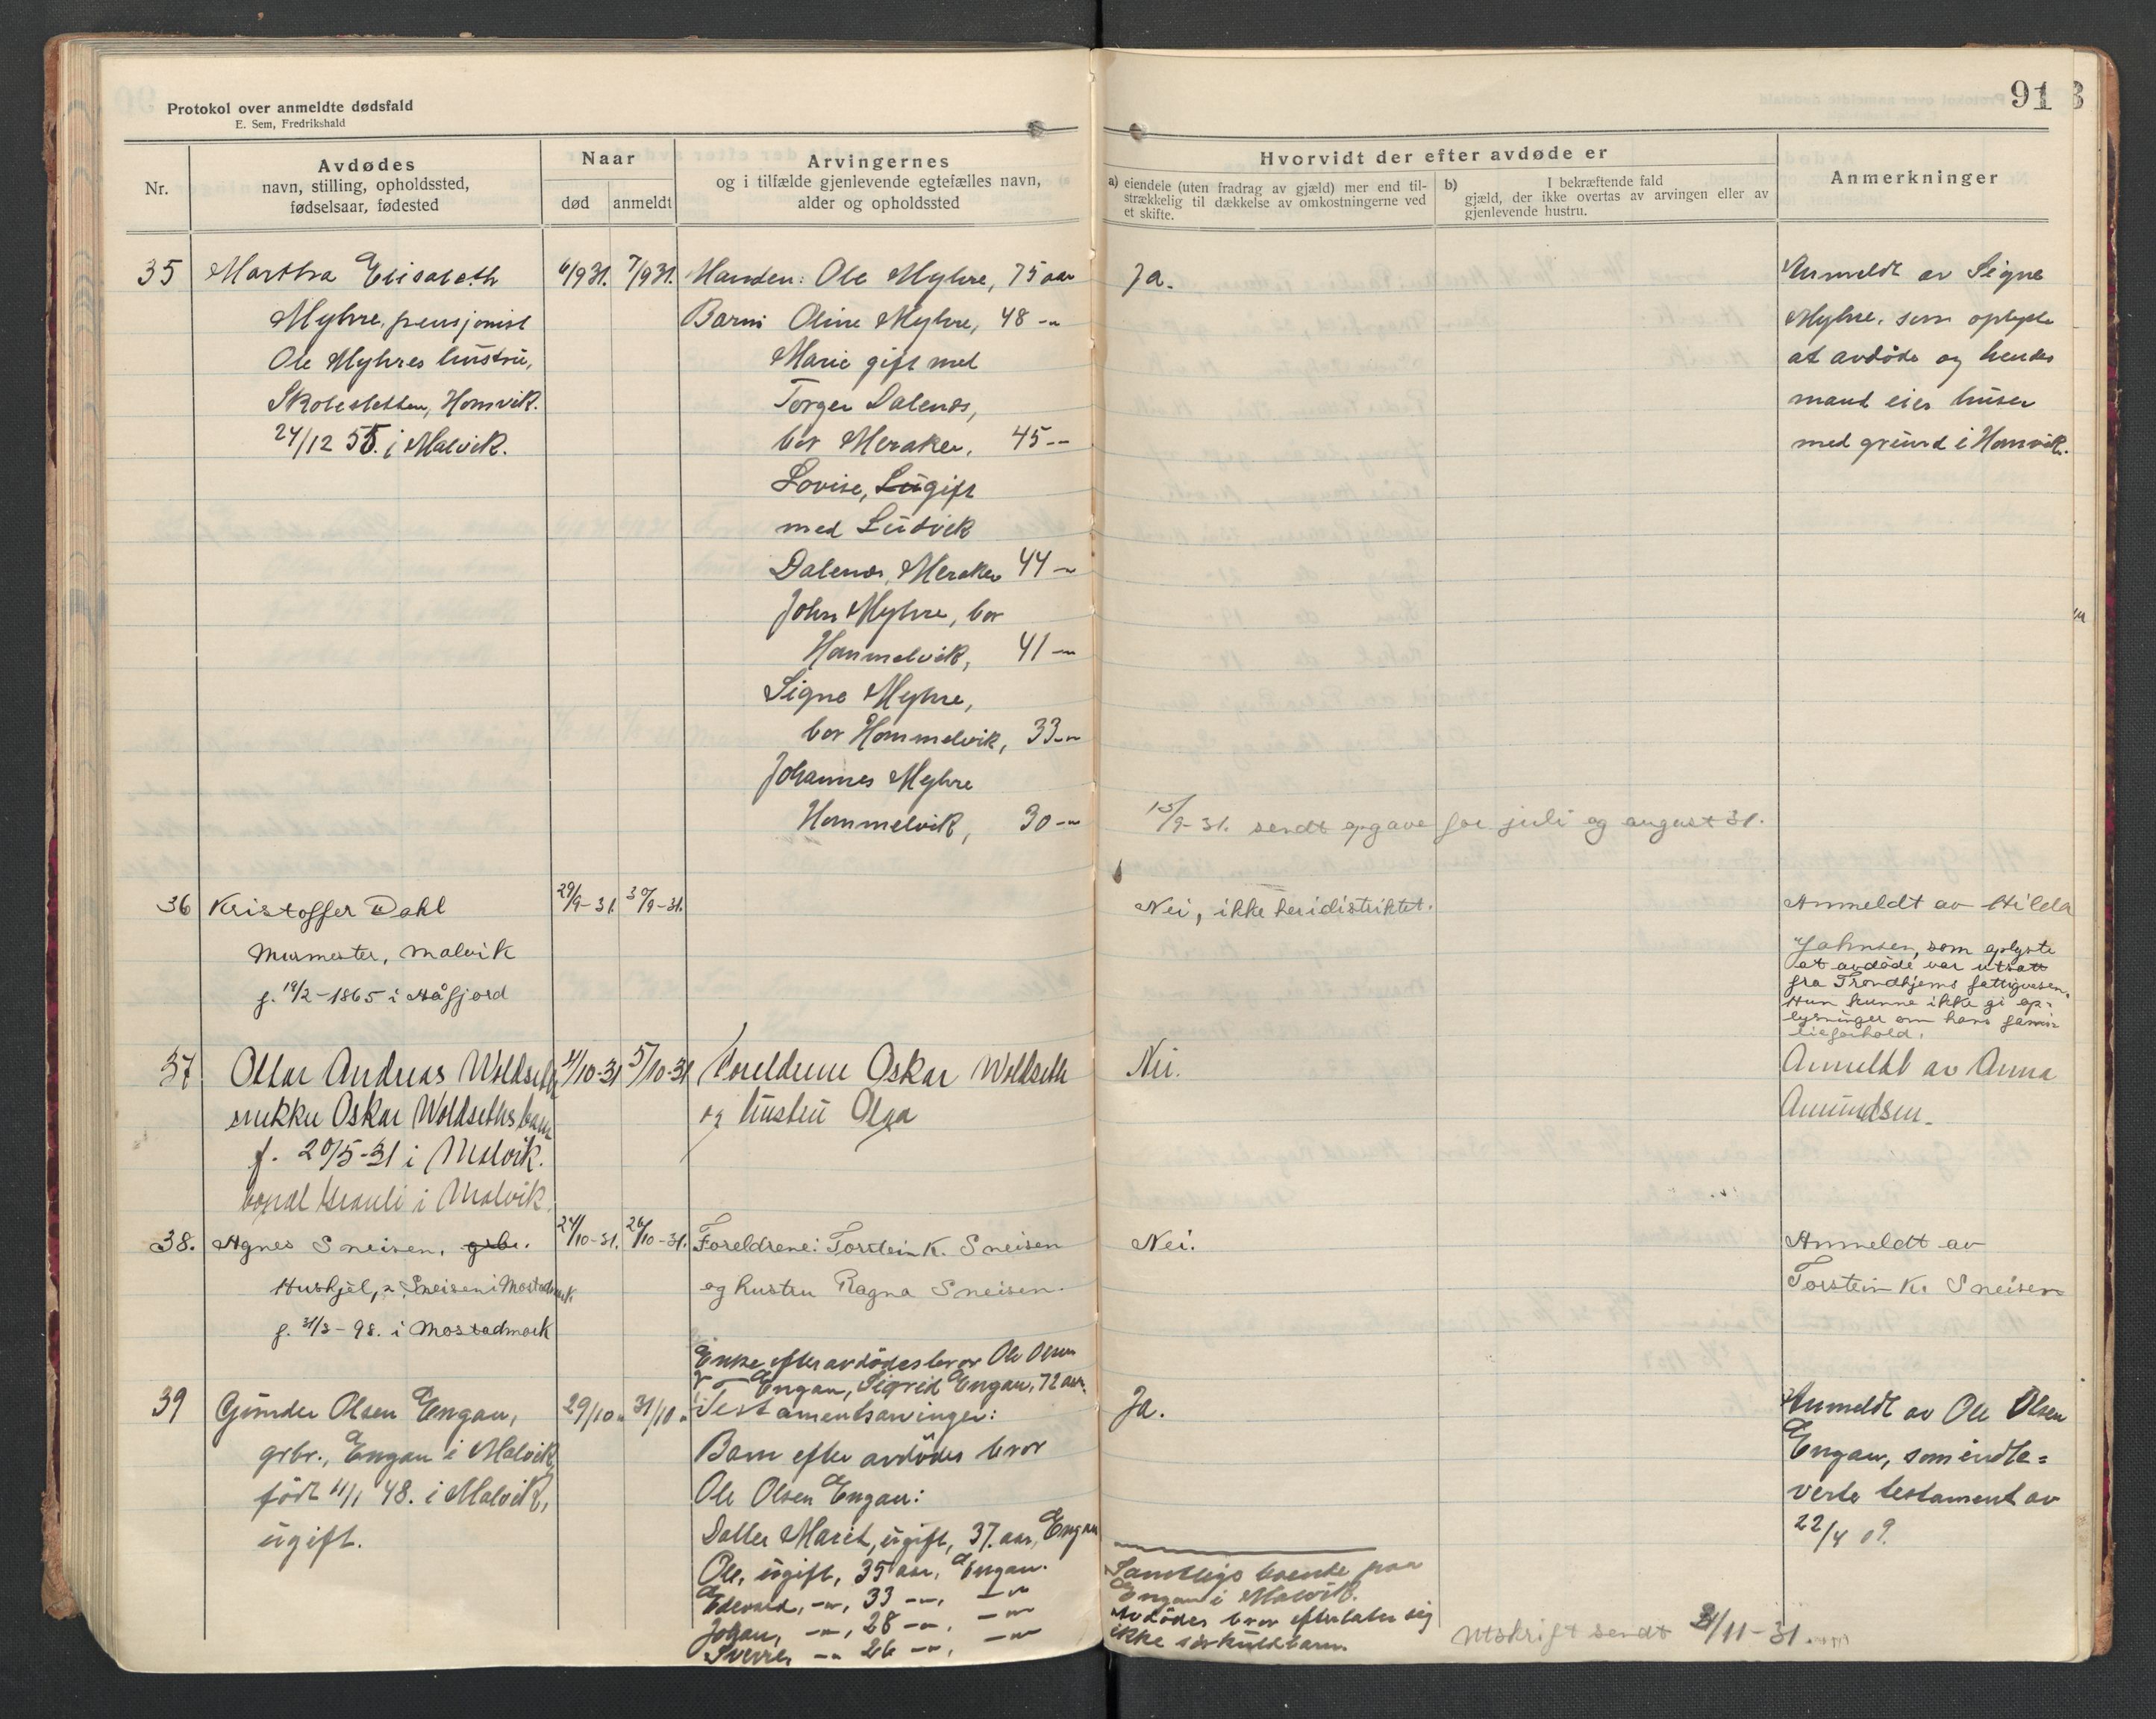 Protokol over anmeldte dødsfald
E. Sem, Fredrikshald
91
Nr.
Avdødes
navn, stilling, opholdssted,
fødselsaar, fødested
Naar
død
anmeldt
Arvingernes
og i tilfælde gjenlevende egtefælles navn,
alder og opholdssted
Hvorvidt der efter avdøde er
a) eiendele (uten fradrag av gjæld) mer end til-
strækkelig til dækkelse av omkostningerne ved
et skifte.
b) I bekræftende fald
gjæld, der ikke overtas av arvingen eller av
gjenlevende hustru.
Anmerkninger
35 Martha Elisabeth
Myhre, pensjonist
Ole Myhres hustru,
Skolesletten, Homvik.
24/12 55. i Malvik.
6/9 31. 7/9 31.
Manden: Ole Myhre, 75 aar
Barn: Oline Myhre, 48 -"-
Marie gift med
Torger Dalenes,
bor Meraker, 45 --
Lovise, Lu gift
med Ludvik
Dalenes, Meraker 44 -"-
John Myhre, bor
Hommelvik, 41 -"-
Signe Myhre,
bor Hommelvik, 33 -"-
Johannes Myhre
Hommelvik, 30 -"-
Ja.
Anmeldt av Signe
Myhre, som oplyste
at avdøde og hendes
mand eier huser
med grund i Homvik.
15/9-31. sendt opgave for juli og august 31.
36 Kristoffer Dahl
Murmester, Malvik
f. 18/2-1865 i Håfjord
29/9-31. 30/9-31.
Nei, ikke her i distriktet.
Anmeldt av Hilda
Johnsen, som oplyste
at avdöde var utsatt
fra Trondhjems fattigvesen.
Hun kunne ikke gi op-
lysninger om hans fami-
lieforhold.
37 Ottar Andreas Woldseth
snekker Oskar Woldseths barn
f. 20/5-31 i Malvik.
bopæl Grønli i Malvik.
4/10-31 5/10-31
Foreldrene Oskar Woldseth
og hustru Olga
Nei.
Anmeldt av Anna
Amundsen.
38. Agnes Sneisen, grbr.
Hushjel, p. Sneisen i Mostadmark
f. 31/3-98. i Mostadmark
24/10-31. 26/10-31.
Foreldrene: Torstein K. Sneisen
og hustru Ragna Sneisen.
Nei.
Anmeldt av
Torstein K. Sneisen
Enke efter avdødes bror Ole Olsen
Engan, Sigrid Engan, 72 aar.
39 Gunder Olsen Engan,
grbr., Engan i Malvik,
født 11/1 48. i Malvik,
ugift.
29/10 " 31/10 "
Testamentsarvinger:
Barn efter avdødes bror
Ole Olsen Engan:
Datter Marit, ugift, 37 aar, Engan
Ole, ugift, 35 aar, Engan.
Edevard, -"-, 33 -"-, -"-
Johan, -"-, 28 -"-, -"-
Sverre, -"- 26 -"-, -"-
Ja.
Anmeldt av Ole Olsen
Engan, som indle=
verte testament av
22/4 09.
Samtlige boende paa
Engan i Malvik.
Avdødes bror efterlater sig
ikke særkuldbarn.
Utskrift sendt 21/11-31.